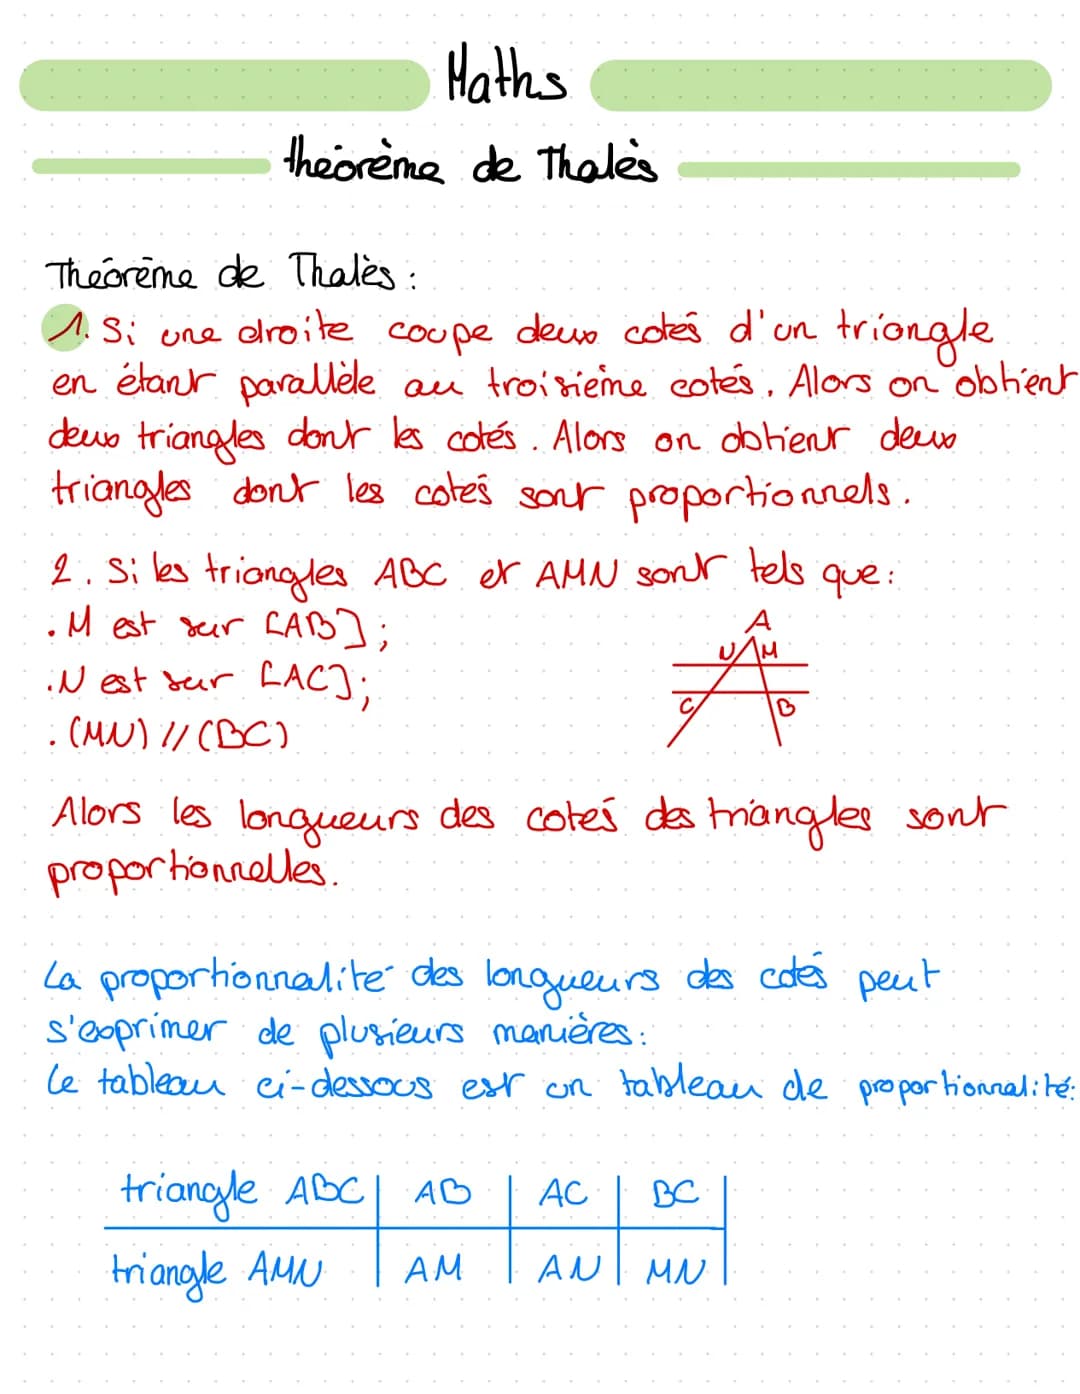 Maths
théorème de Thalès
Théorème de Thalès :
1. Si une droite coupe deux cotés d'un triangle
en étant parallèle au troisième cotés. Alors on obtient
deux triangles dont les cotés. Alors on obtient deux
triangles dont les cotés sont proportionnels.
2. Si les triangles ABC et AMN sont tels que :
. M est sur [AB] ;
. N est sur [AC] ;
. (MN) // (BC)
A
N M
C B
Alors les longueurs des cotés des triangles sont
proportionnelles.
La proportionnalité des longueurs des cotés peut
s'exprimer de plusieurs manières :
Le tableau ci-dessous est un tableau de proportionnalité :
triangle ABC | AB | AC | BC
triangle AMN | AM | AN | MN